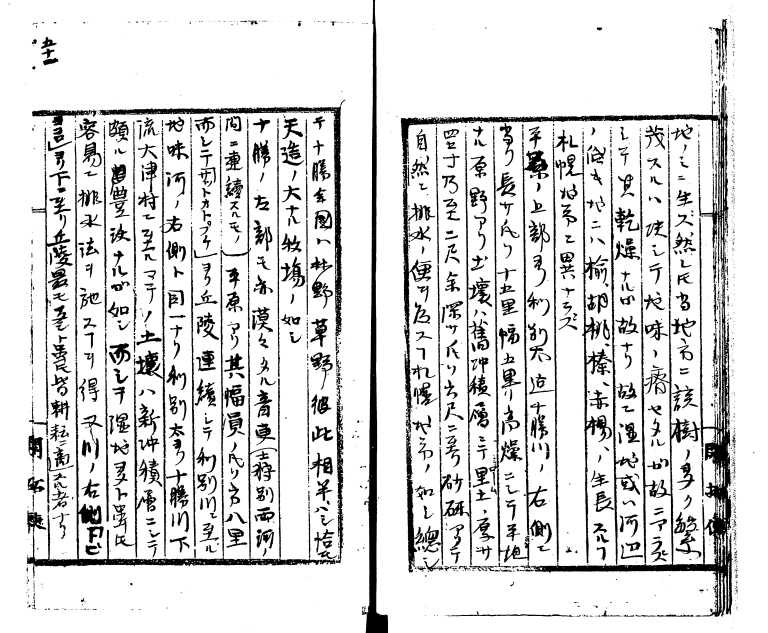 地ノミニ生ズ然レ𪜈当地方ニ該樹ノ多ク繁
茂スルハ決シテ地味ノ瘠セタルガ故ニアラズ
シテ其乾燥ナルガ故ナリ故ニ湿地或ハ河辺
ノ低キ地ニハ楡、胡桃、榛、赤楊、ノ生長スルフ
札幌地方ト異ナラズ
平原ノ上部ヨリ利別太迄十勝川ノ右側ニ
当リ長サ凡ソ十五里幅五里ノ高燥ニシテ平坦
ナル原野アリ土壌ハ旧沖積層ニテ黒土ノ厚サ
四寸乃至二尺余深サ凡ソ六尺ニ至リ砂礫アリテ
自然ニ排水ノ便ヲ為スフ札幌地方ノ如シ総シ
五十一
テ十勝全国ハ林野草野彼此相半ハシ恰モ
天造ノ大ナル牧場ノ如シ
十勝ノ右部モ亦漠々タル音更士狩別両河ノ
間ニ連続スルモノ平原アリ其幅員ノ凡ソ方八里
而シテヨリ丘陵連続シテ利別川ニ至ル
地味河ノ右側ト同一ナリ利別太ヨリ十勝川下
流大津村ニ至ルマテノ土壌ハ新沖積層ニシテ
頗ル豊沃ナルガ如シ而シテ湿地多シト雖𪜈
容易ニ排水法ヲ施スフヲ得又川ノ右側
ヨリ下ニ至リ丘陵ト雖𪜈皆耕耘ニ適スル者ナリ
開拓使
開拓使